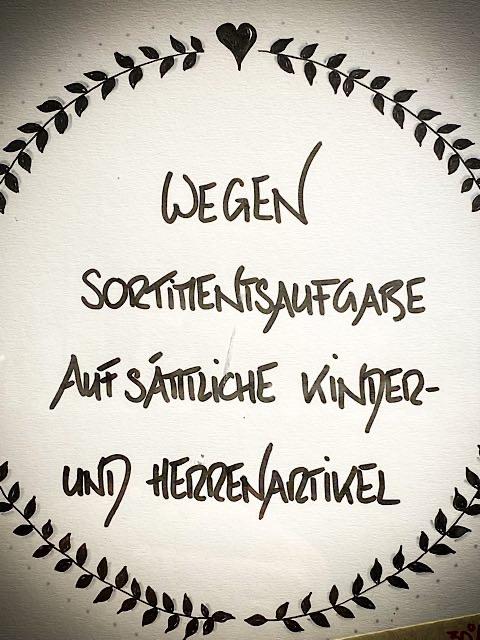 WEGEN
SORTIMENTSAUFGABE
AUF SÄMTLICHE KINDER-
UND HERRENARTIKEL
30%